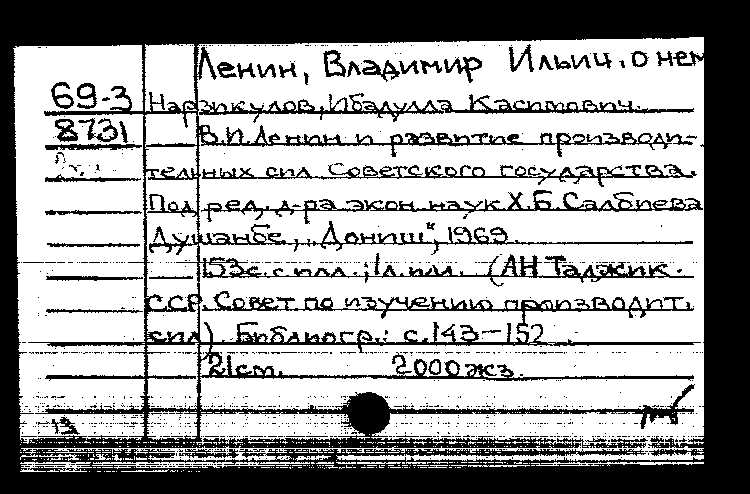 Ленин, Владимир Ильич. о нем
69-3
Нарзикулов, Ибадулла Касимович.
8731
В.И. Ленин и развитие производи-
тельных сил Советского государства.
Под ред. д-ра экон наук Х.Б. Салбиева
Душанбе, „Дониш", 1969.
153с. с илл.; 1л. илл. (АН Таджик.
ССР. Совет по изучению производит.
сил). Библиогр.: с.143-152.
21см. 2000 экз.